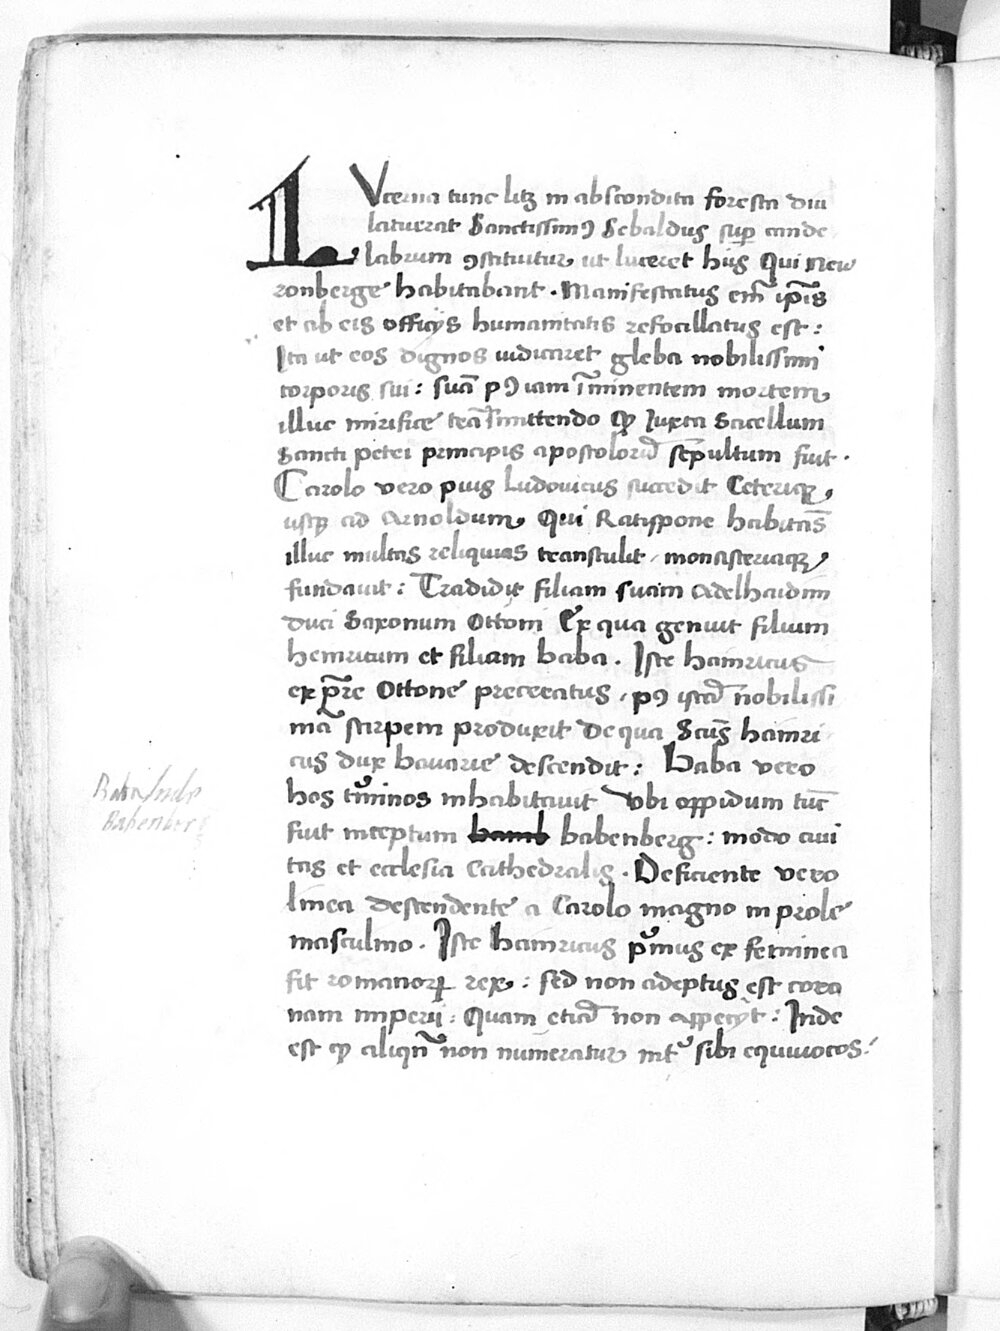 LVcerna tunc litz in abscondita foresta diu
latuerat Sanctissimꝰ Sebaldus sup cande
labrum ꝯstituitur ut luceret hijs Qui new
ronberge habitabant . Manifestatus em̄ ip̄is
et ab eis officijs humanitatis refocillatus est :
Ita ut eos dignos iudicaret gleba nobilissimi
corporis sui : suā pꝰ iam īminentem mortem
illuc mirifice trāsmittendo Qꝫ Iuxta Sacellum
Sancti petri principis apostolorū sepultum fuit .
Carolo vero pius Ludouicus succedit Ceteriqꝫ
usqꝫ ad Arnoldum Qui Ratispone habitās
illuc multas reliquias transtulit monasteriaqꝫ
fundauit : Tradidit filiam suam Adelhaidim
duci Saxonum Ottoni Ex qua genuit filium
henricum et filiam baba . Iste hainricus
ex pr̄e Ottone precreatus , pꝰ istā nobilissi
mā stirpem produxit De qua Scūs hainri
cus dux bauarie descendit : Baba vero
hos tm̄inos inhabitauit Vbi oppidum tūc
Baba / inde
Babenberg
fuit inceptum bamb babenberg : modo ciui
tas et ecclesia Cathedralis . Deficiente vero
linea descendente a Carolo magno in prole
masculino . Iste hainricus pͥmus ex feminea
fit romanorꝫ rex : sed non adeptus est coro
nam imperii : Quam etiā non appetijt : Inde
est qꝫ aliqn̄ non numeratur int͛ sibi equiuocos :